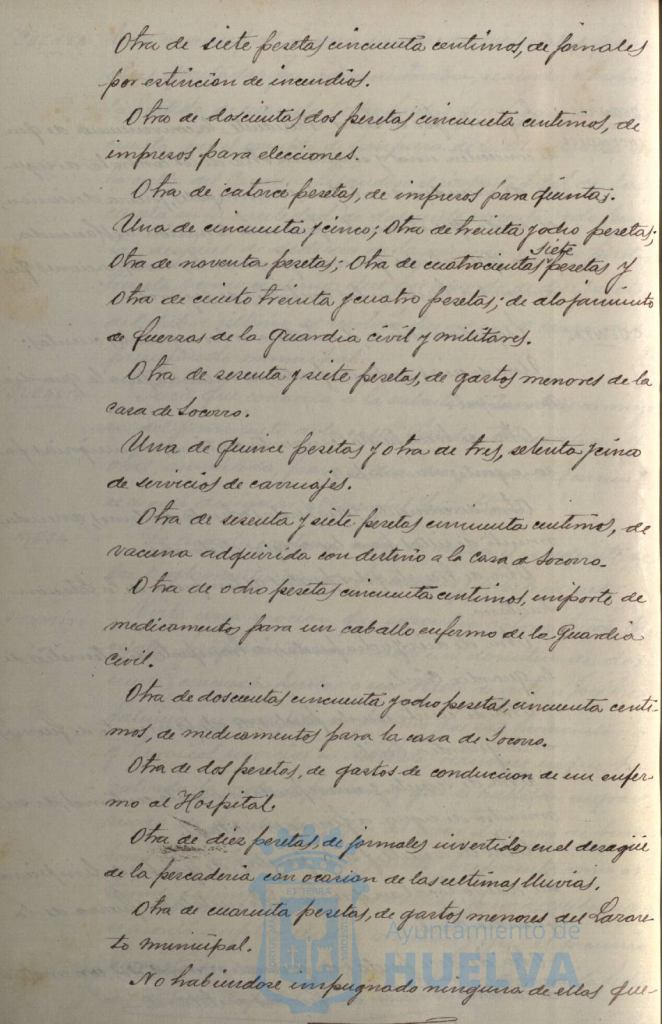 Otra de siete pesetas cincuenta centimos, de jornales
por estincion de incendios.
Otra de doscientas dos pesetas cincuenta centimos, de
impresos para elecciones.
Otra de catorce pesetas, de impresos para quintas.
Una de cincuenta y cinco; Otra de treinta y ocho pesetas;
Otra de noventa pesetas; Otra de cuatrocientas siete pesetas y
Otra de ciento treinta y cuatro pesetas; de alojamiento
de fuerzas de la Guardia civil y militares.
Otra de sesenta y siete pesetas, de gastos menores de la
casa de Socorro.
Una de quince pesetas y otra de tres, setenta y cinco
de servicios de carruajes.
Otra de sesenta y siete pesetas cincuenta centimos, de
vacuna adquirida con destino a la casa de Socorro.
Otra de ocho pesetas cincuenta centimos, importe de
medicamentos para un caballo enfermo de la Guardia
civil.
Otra de doscientas cincuenta y ocho pesetas, cincuenta centi-
mos, de medicamentos para la casa de Socorro.
Otra de dos pesetas, de gastos de conduccion de un enfer-
mo al Hospital.
Otra de diez pesetas, de jornales invertidos en el desagüe
de la pescaderia con ocasion de las ultimas lluvias.
Otra de cuarenta pesetas, de gastos menores del Lazare-
to municipal.
No habiendose impugnado ninguna de ellas fue-
Ayuntamiento de
HUELVA